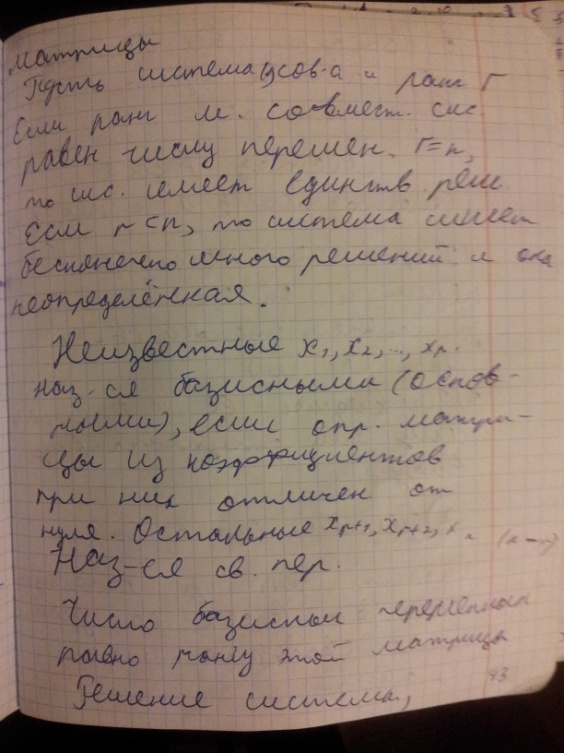 матрицы
Пусть система усов-а и ранг r
Если ранг м. совмест. сис.
равен числу перемен. r=n,
то сис. имеет единств реш.
Если r<n, то система имеет
бесконечно много решений и она
неопределённая.
Неизвестные x₁, x₂, ..., xᵣ.
наз-ся базисными (основ-
ными), если опр. матри-
цы из коэффициентов
при них отличен от
нуля. Остальные xᵣ₊₁, xᵣ₊₂,
Наз-ся св. пер.
Число базисных переменных
равно рангу этой матрицы
Решение система,
93